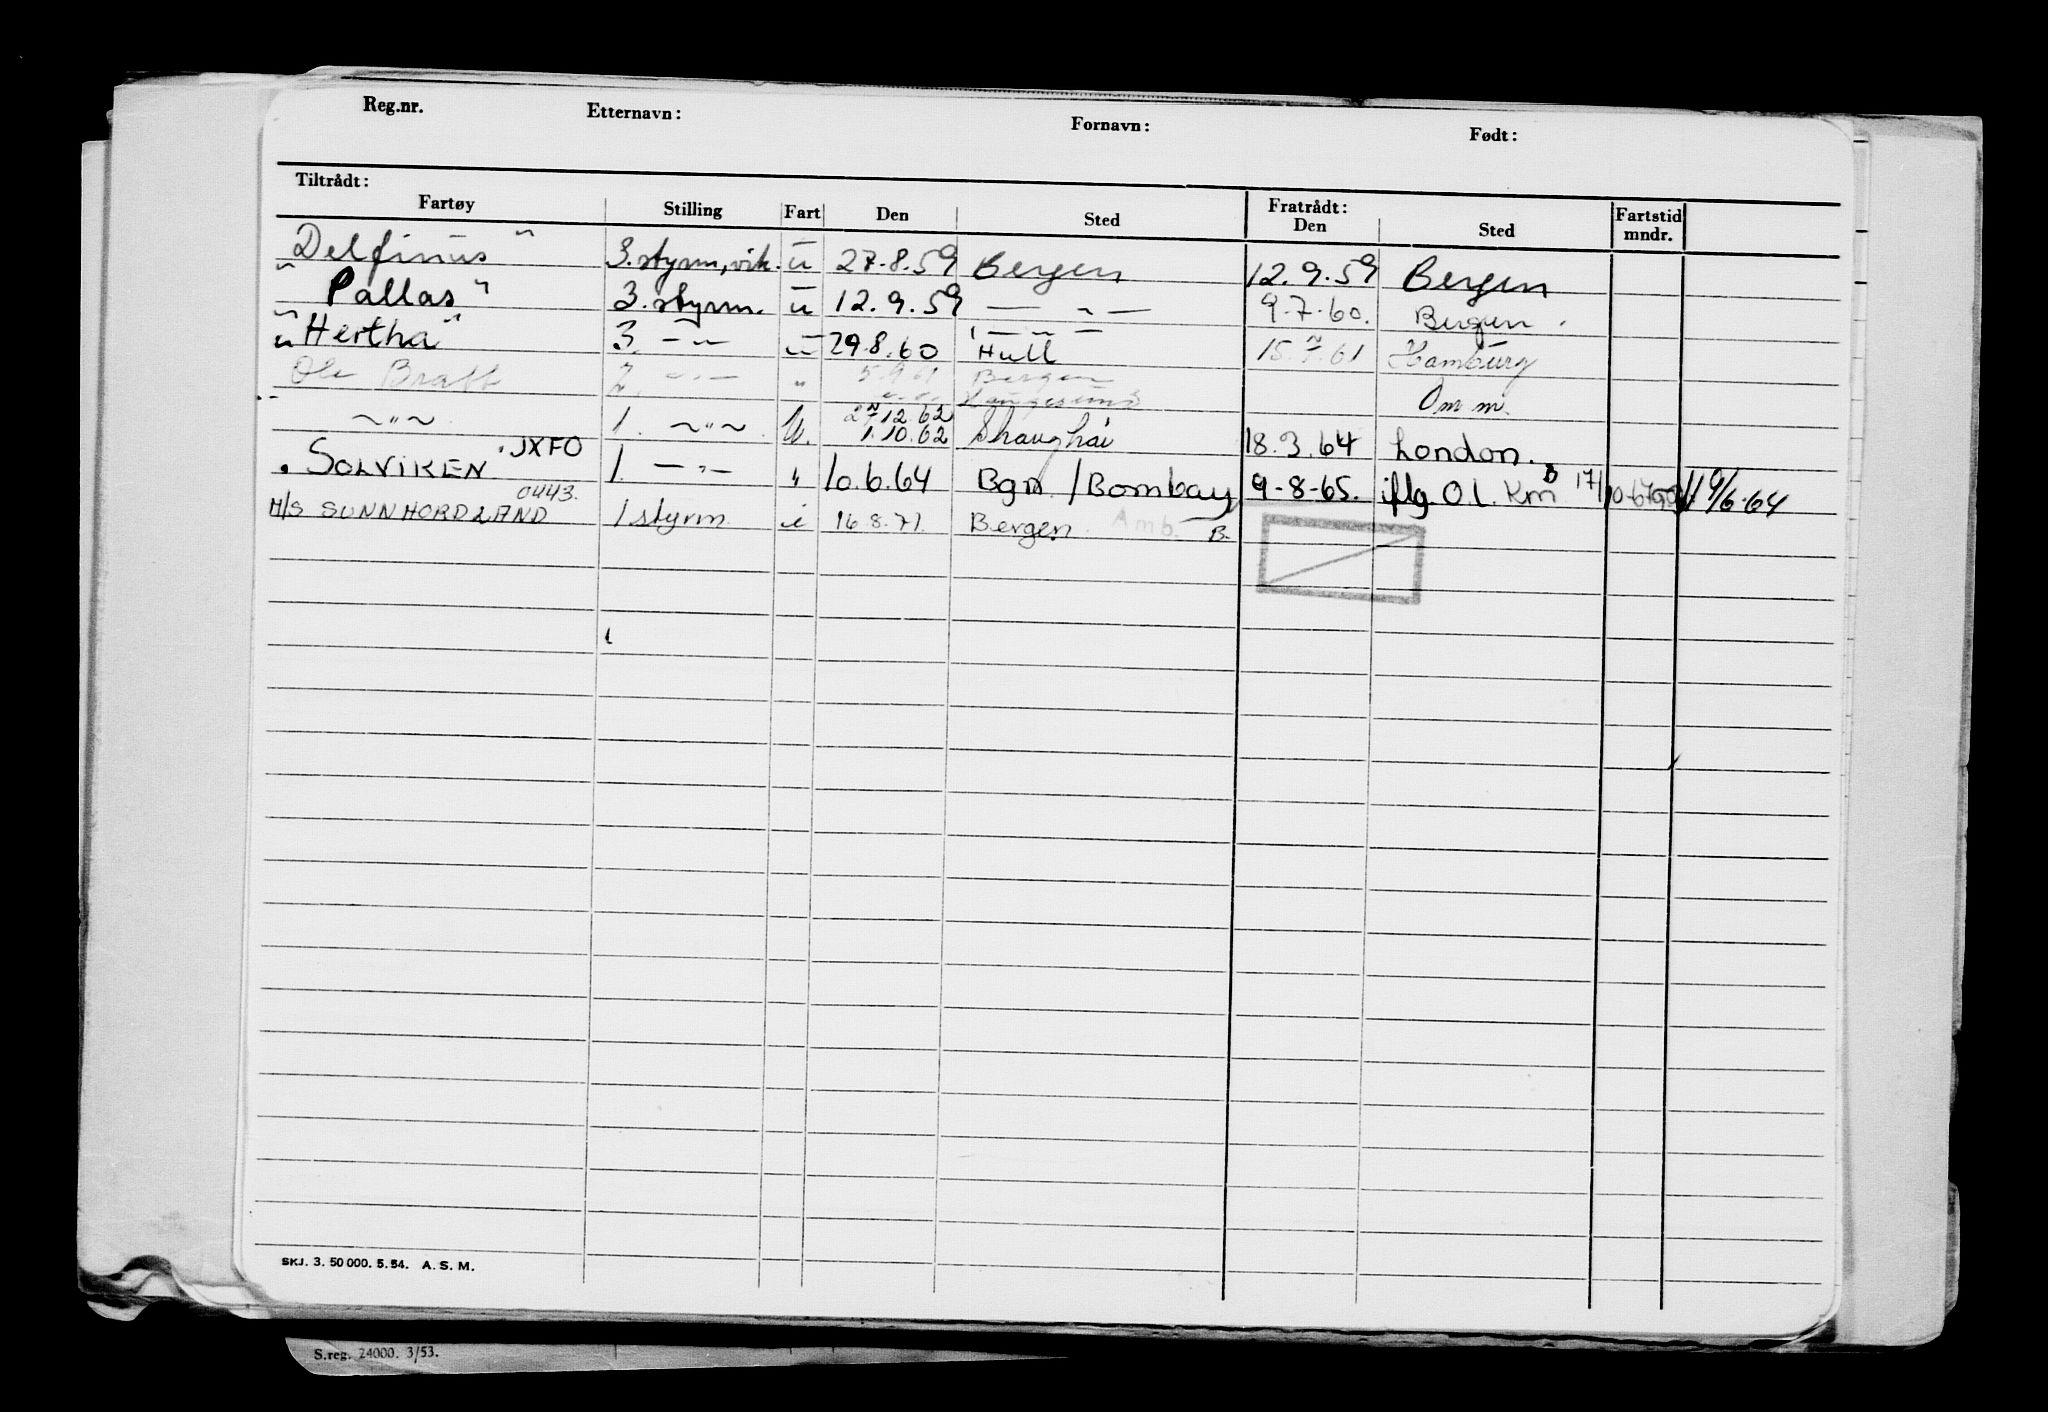 Reg.nr. Etternavn: Fornavn: Født:
Tiltrådt: Fratrådt:
Fartøy Stilling Fart Den Sted Den Sted Fartstid mndr.
Delfinus" 3. styrm, vik. u 27.8.59 Bergen 12.9.59 Bergen
"Pallas" 3. styrm. u 12.9.59 — " — 9.7.60. Bergen.
"Hertha" 3. — " — u 29.8.60 Hull 15.7.61 Hamburg
Ole Bratt 2. — " — " 5.9.61 Bergen
Haugesund Om m.
~ " ~ 1. ~ " ~ U. 27.12.62
1.10.62 Shanghai 18.3.64 London.
"SOLVIKEN" JXFO 1. — " — " 10.6.64 Bgn / Bombay 9-8-65. iflg. O.l. Km 17/ 9/6-64
M/S SUNNHORDLAND 0443. 1 styrm i 16.8.71. Bergen. Amb. B.
SKJ. 3. 50 000. 5.54. A. S. M.
S.reg. 24000. 3/53.